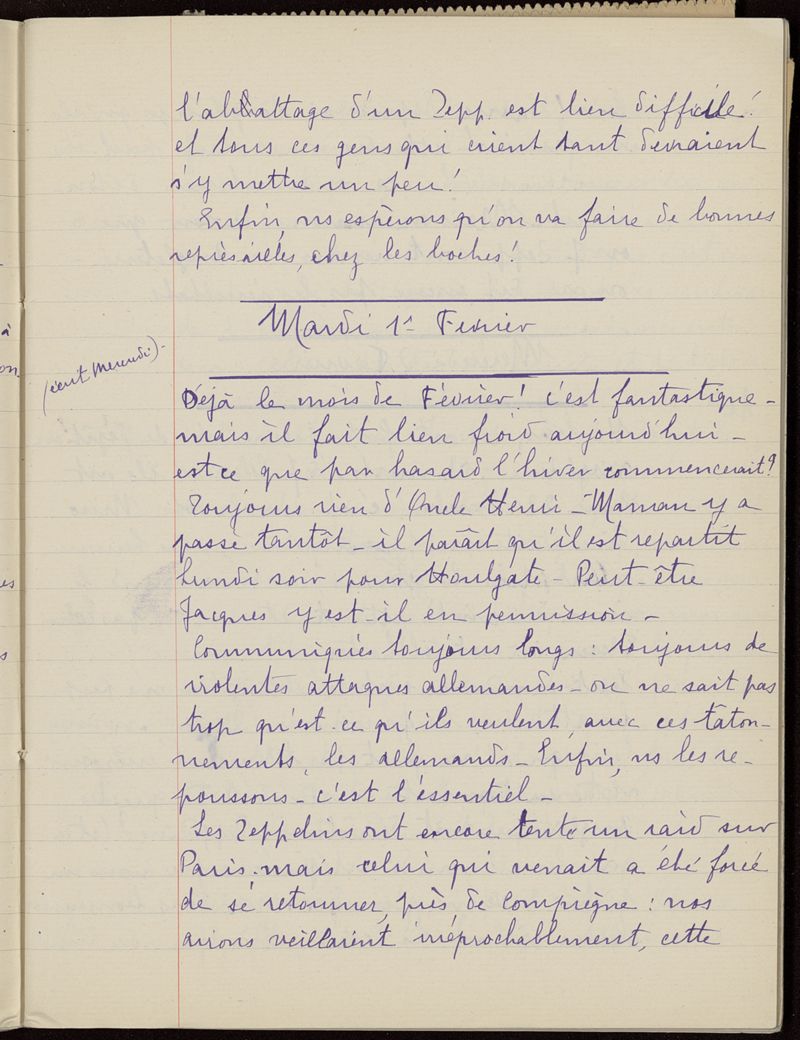 l'abbattage d'un Zepp. est bien difficile!
et tous ces gens qui crient tant devraient
s'y mettre un peu!
Enfin, ns espérons qu'on va faire de bonnes
représailles, chez les boches!
Mardi 1er Février
(écrit mercredi)-
Déjà le mois de Février! c'est fantastique -
mais il fait bien froid aujourd'hui -
est ce que par hasard l'hiver commencerait?
Toujours rien d'Oncle Henri - Maman y a
passé tantôt - il paraît qu'il est repartit
Lundi soir pour Houlgate - Peut-être
Jacques y est-il en permission -
Communiqués toujours longs : toujours de
violentes attaques allemandes - on ne sait pas
trop qu'est-ce qu'ils veulent, avec ces taton-
nements, les allemands - Enfin, ns les re-
poussons - c'est l'éssentiel -
Les Zeppelins ont encore tenté un raid sur
Paris - mais celui qui venait a été forcé
de se retourner, près de Compiègne : nos
avions veillaient irréprochablement, cette